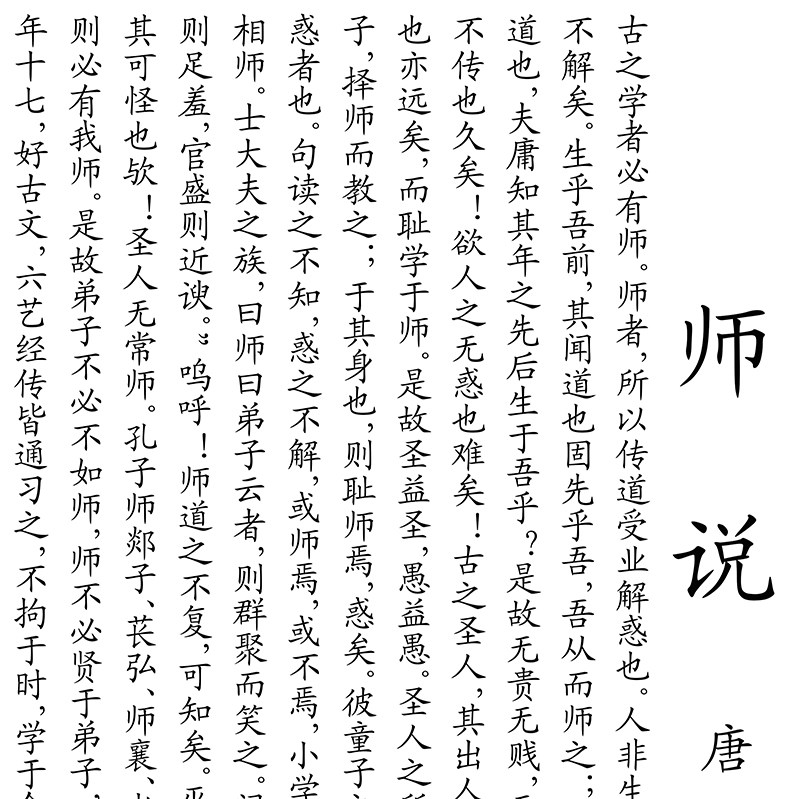 师说 唐
古之学者必有师。师者，所以传道受业解惑也。人非生
不解矣。生乎吾前，其闻道也固先乎吾，吾从而师之；
道也，夫庸知其年之先后生于吾乎？是故无贵无贱，
不传也久矣！欲人之无惑也难矣！古之圣人，其出人
也亦远矣，而耻学于师。是故圣益圣，愚益愚。圣人之
子，择师而教之；于其身也，则耻师焉，惑矣。彼童子
惑者也。句读之不知，惑之不解，或师焉，或不焉，小学
相师。士大夫之族，曰师曰弟子云者，则群聚而笑之。
则足羞，官盛则近谀。”呜呼！师道之不复，可知矣。
其可怪也欤！圣人无常师。孔子师郯子、苌弘、师襄、
则必有我师。是故弟子不必不如师，师不必贤于弟子，
年十七，好古文，六艺经传皆通习之，不拘于时，学于